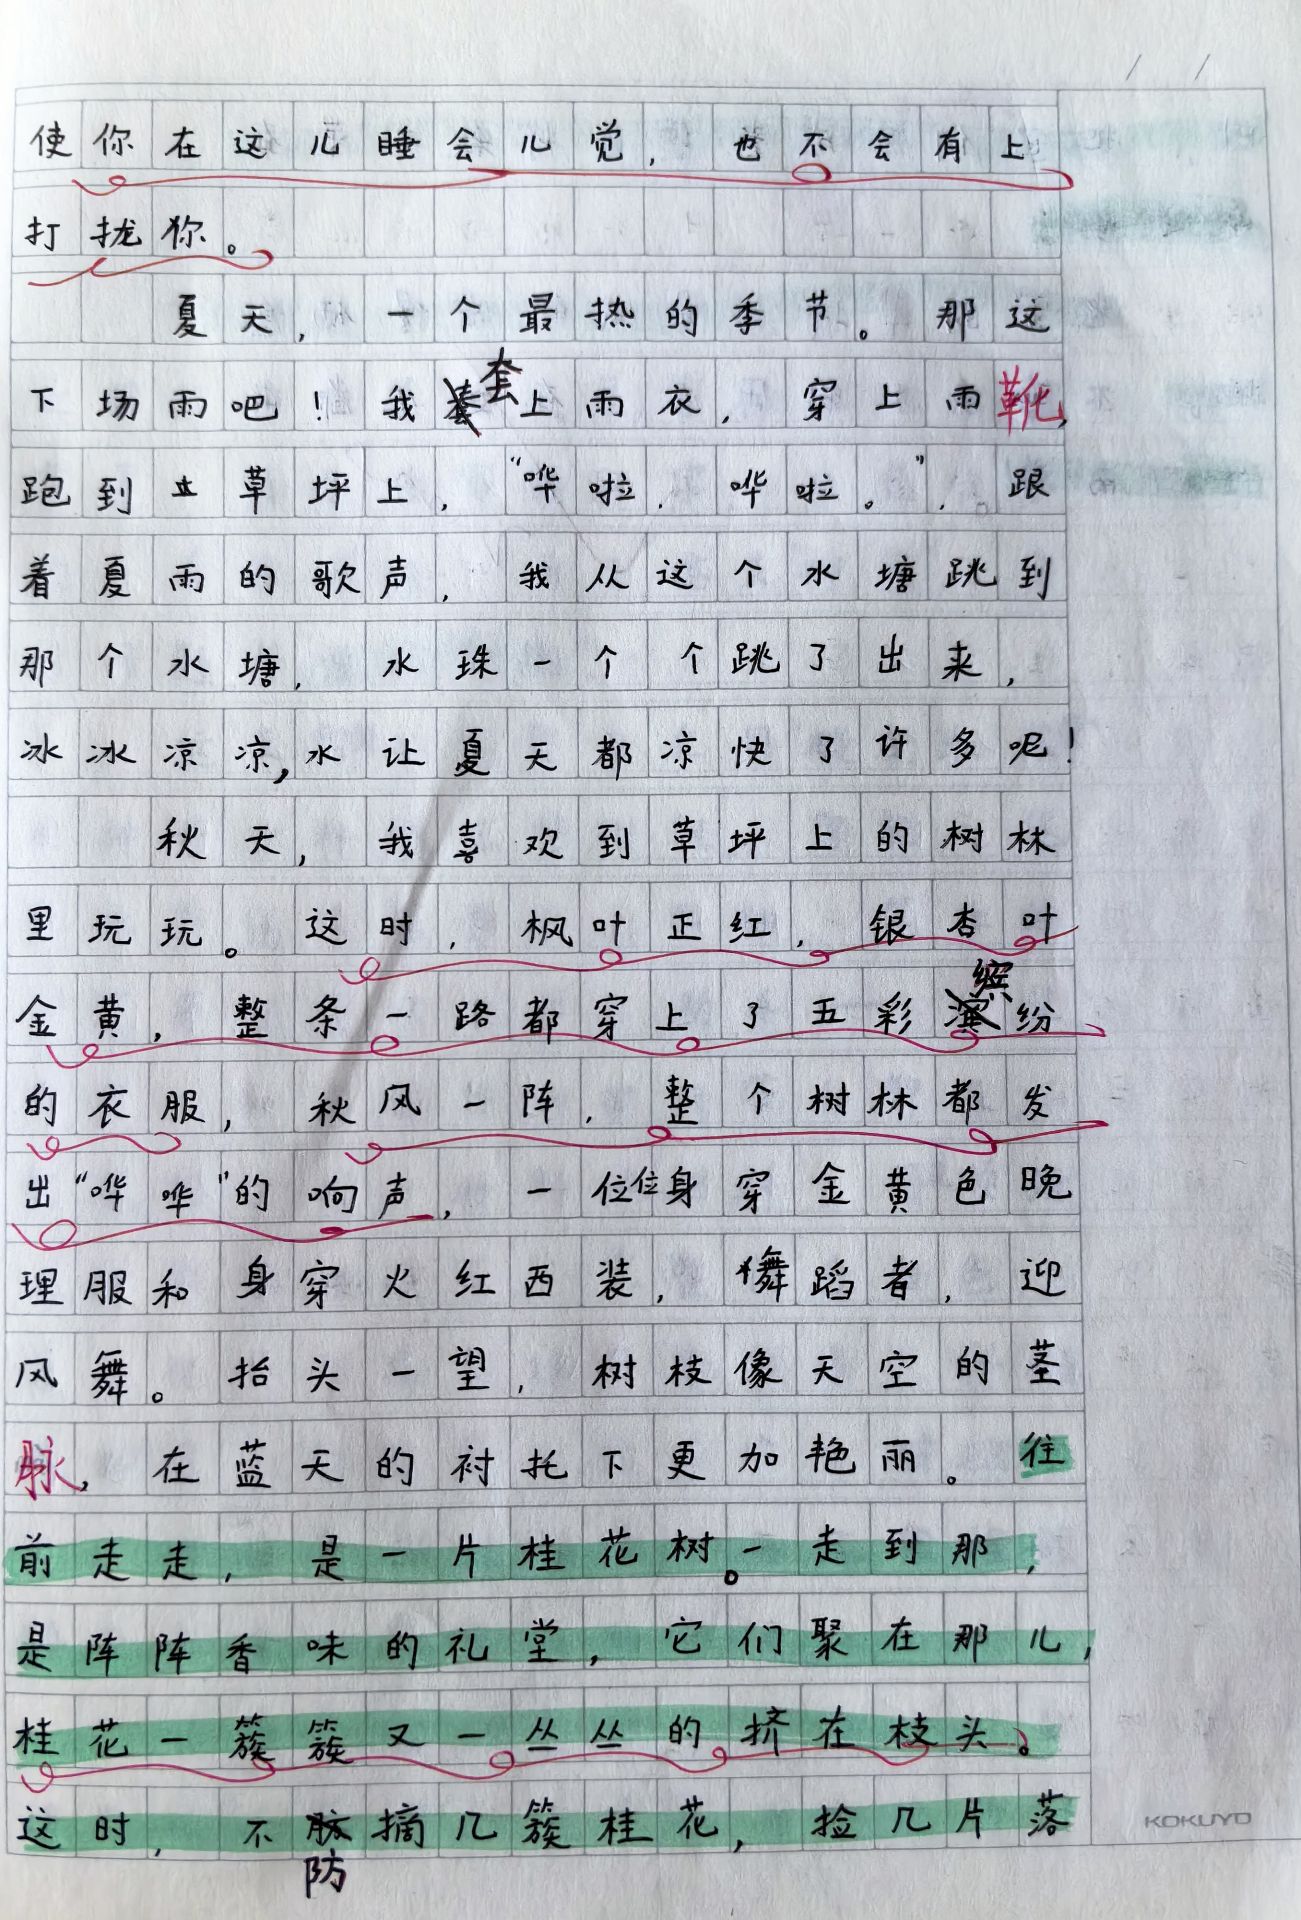 使你在这儿睡会儿觉，也不会有上
打拢你。
夏天，一个最热的季节。那这
下场雨吧！我套上雨衣，穿上雨靴，
跑到草坪上，“哗啦，哗啦。”，跟
着夏雨的歌声，我从这个水塘跳到
那个水塘，水珠一个个跳了出来，
冰冰凉凉，水让夏天都凉快了许多呢！
秋天，我喜欢到草坪上的树林
里玩玩。这时，枫叶正红，银杏叶
金黄，整条一路都穿上了五彩缤纷
的衣服，秋风一阵，整个树林都发
出“哗哗”的响声，一位位身穿金黄色晚
理服和身穿火红西装，舞蹈者，迎
风舞。抬头一望，树枝像天空的茎
脉，在蓝天的衬托下更加艳丽。往
前走走，是一片桂花树。一走到那，
是阵阵香味的礼堂，它们聚在那儿，
桂花一簇簇又一丛丛的挤在枝头。
这时，不防摘几簇桂花，捡几片落
KOKUYO